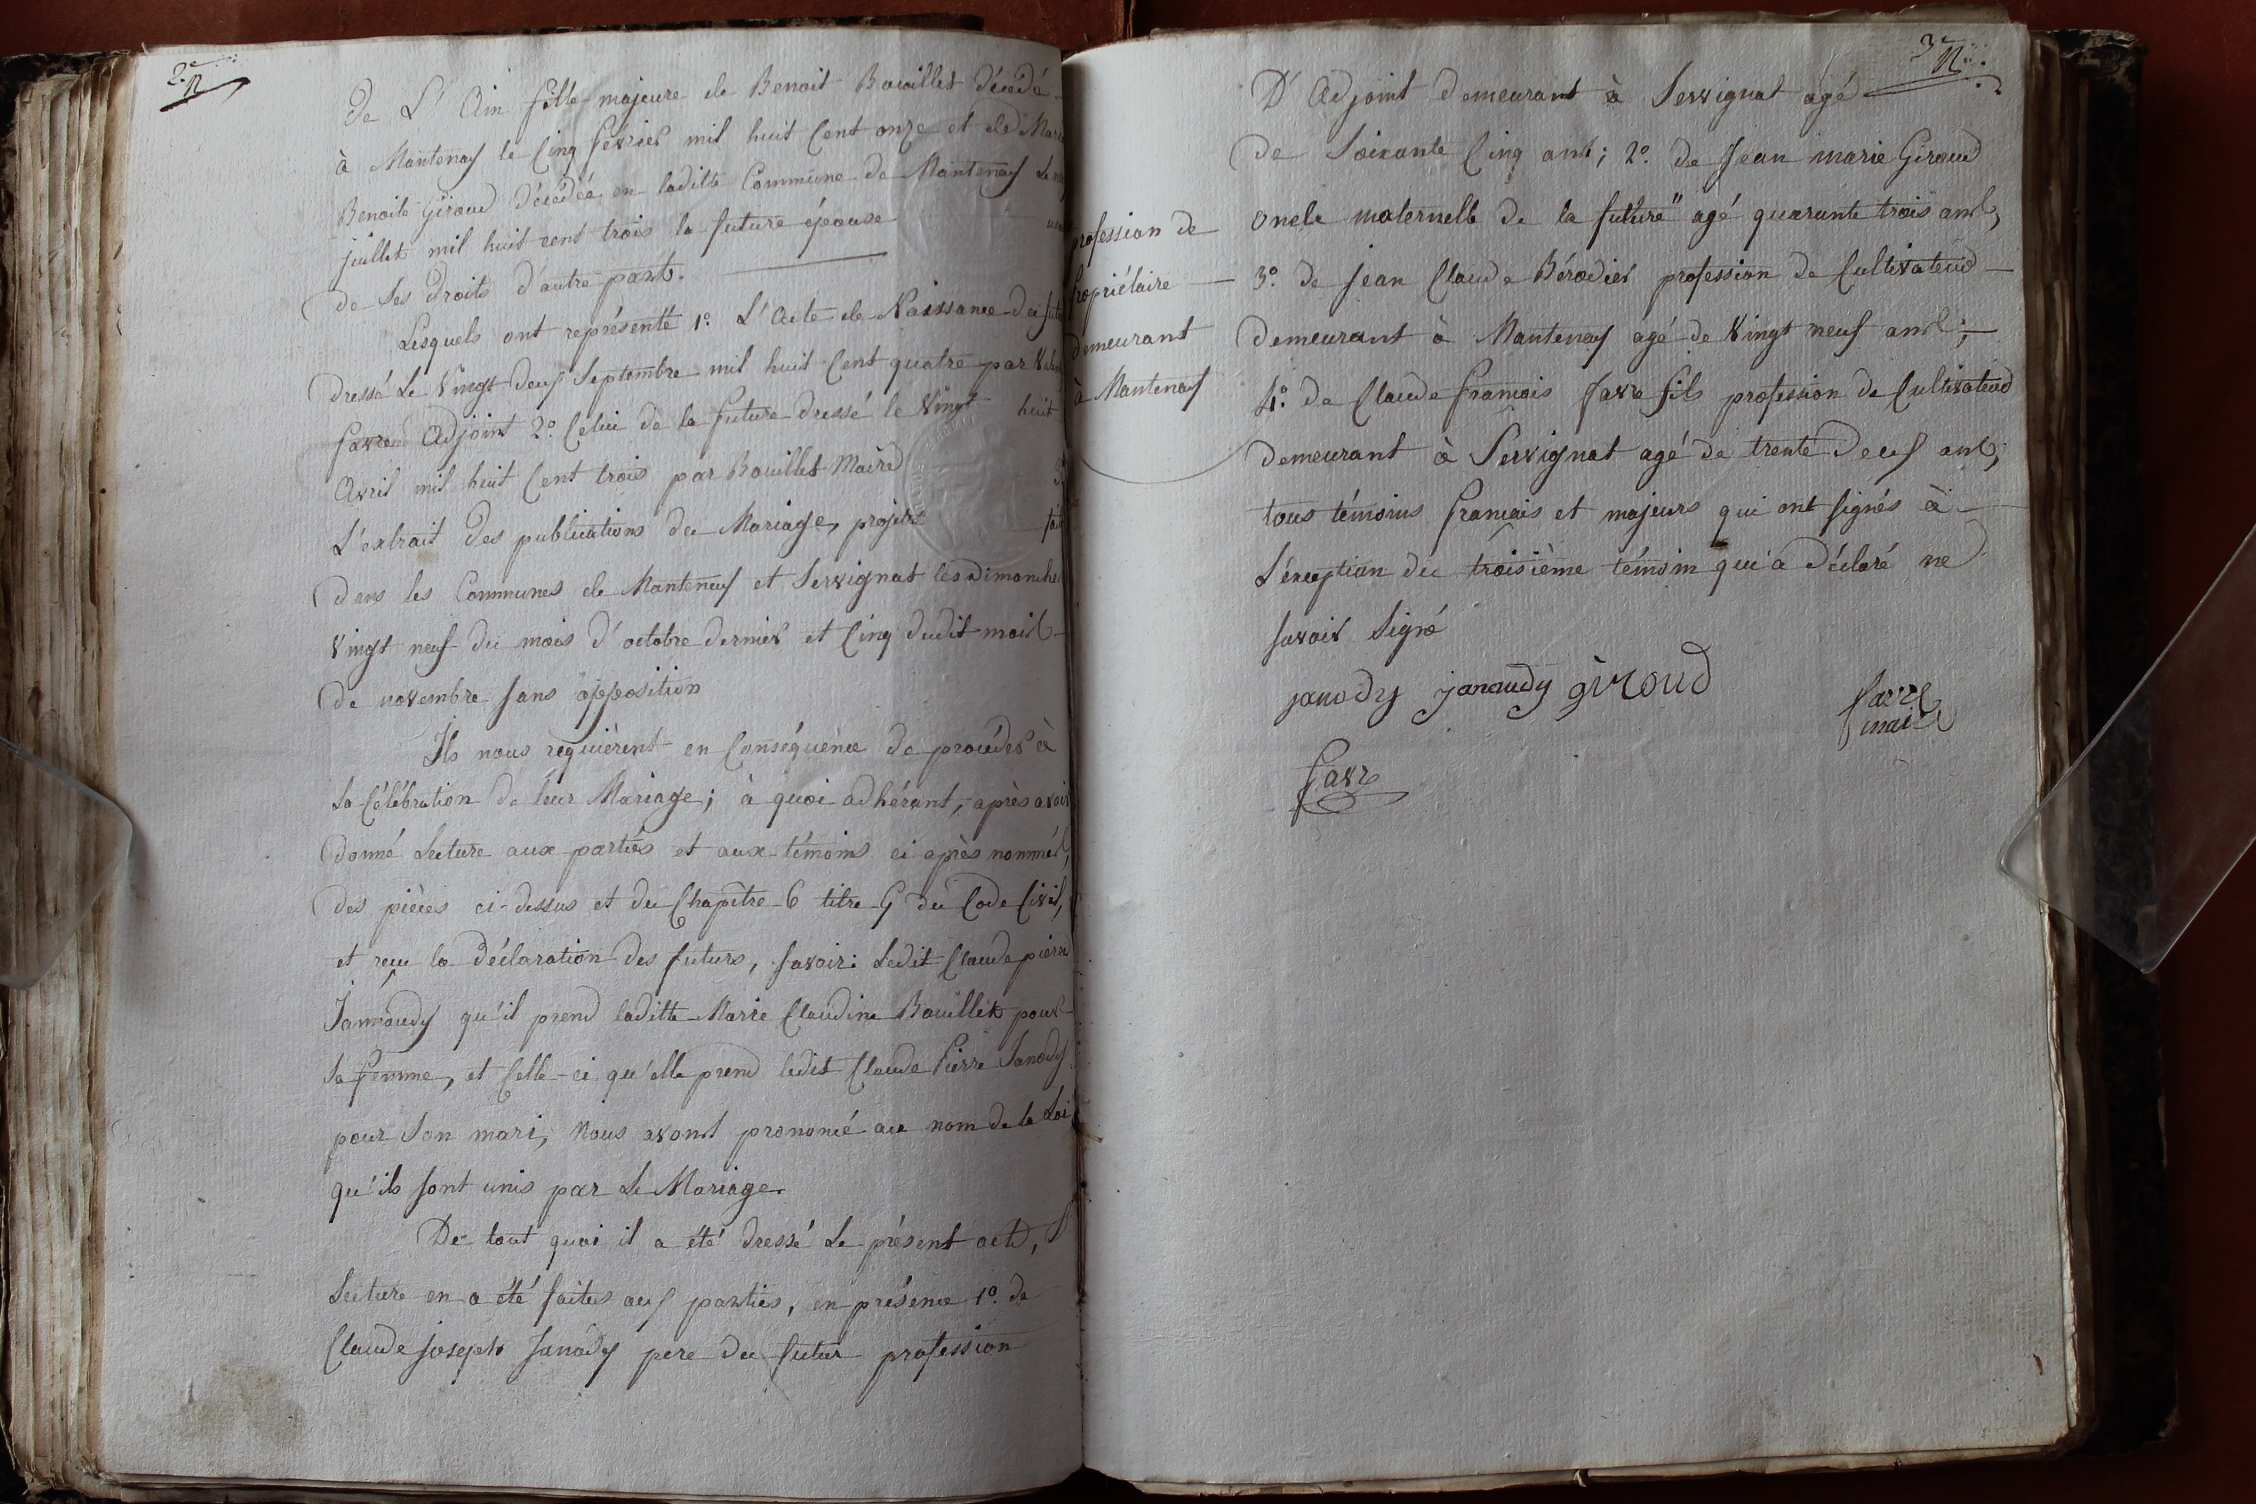 2e
de L' Ain fille majeure de Benoit Bouillet décédé
à Mantenay le Cinq février mil huit Cent onze et de Marie
Benoite Giroud décédée en laditte Commune de Mantenay Le
juillet mil huit cent trois la future épouse
de Ses Droits d'autre part.
Lesquels ont représenté 1º. L'Acte de Naissance du
dressé Le Vingt deux Septembre mil huit Cent quatre par
favre Adjoint 2º. Celui de la future dressé le Vingt huit
Avril mil huit Cent trois par Bouillet Maire
L'extrait des publications du Mariage, projetté
dans les Communes de Mantenay et Servignat les Dimanches
Vingt neuf du mois d'octobre dernier et Cinq dudit mois
de novembre sans opposition
Ils nous requièrent en Conséquence de procéder à
La Célébration de leur Mariage; à quoi adhérant, après avoir
donné Lecture aux parties et aux témoins ci après nommés,
des pièces ci-dessus et du Chapitre 6 titre 5 du Code Civil,
et reçu la déclaration des futurs, Savoir: Ledit Claude pierre
Jannaudy qu'il prend laditte Marie Claudine Bouillet pour
Sa femme, et Celle-ci qu'elle prend ledit Claude Pierre Janody
pour Son mari, Nous avons prononcé au nom de la Loi
qu'ils sont unis par Le Mariage.
De tout quoi il a été dressé Le présent acte,
Lecture en a été faites aux parties, en présence 1º. de
Claude joseph Janody pere du futur profession
3e
D' Adjoint demeurant à Servignat agé
de Soixante Cinq ans; 2º. de Jean marie Giroud
oncle maternelle de la future" agé quarante trois ans,
profession de
propriétaire
demeurant
à Mantenay
3º. de jean Claude Bérodier profession de Cultivateur
demeurant à Mantenay agé de Vingt neuf ans;
4º. de Claude françois favre fils profession de Cultivateur
demeurant à Servignat agé de trente Deux ans,
tous témoins français et majeurs qui ont signés à
L'éxception du troisième témoin qui a déclaré ne
savoir Signé
janody janaudy giroud
favre
maire
favre